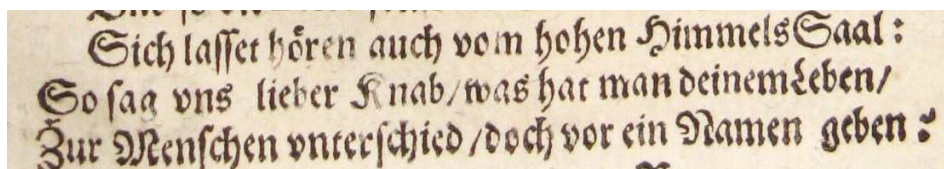 Sich lasset hören auch vom hohen Himmels Saal:
So sag vns lieber Knab/ was hat man deinem Leben/
Zur Menschen vnterschied/ doch vor ein Namen geben: